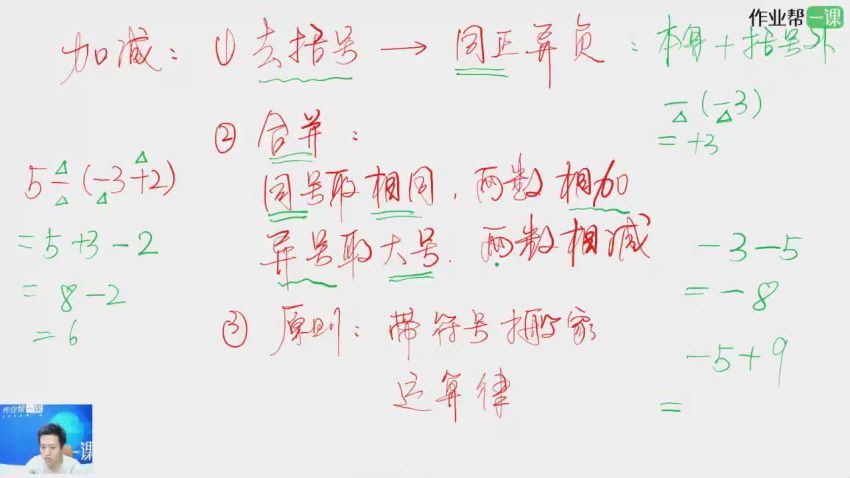 作业帮一课
加减：① 去括号 → 同正异负：本身 + 括号外
-(-3)
= +3
② 合并：
5-(-3+2)
同号取相同，两数相加
=5+3-2
异号取大号，两数相减
-3-5
= 8-2
= -8
= 6
③ 原则：带符号搬家
-5+9
运算律
=
作业帮一课
一课